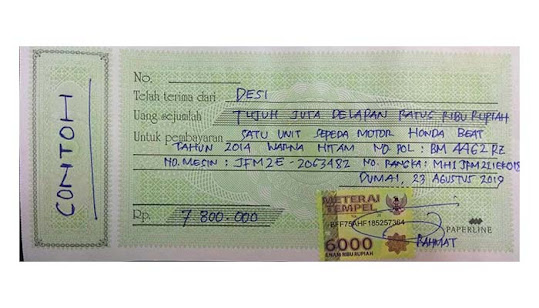 CONTOH
No.
Telah terima dari DESI
Uang sejumlah TUJUH JUTA DELAPAN RATUS RIBU RUPIAH
Untuk pembayaran SATU UNIT SEPEDA MOTOR HONDA BEAT
TAHUN 2014 WARNA HITAM NO. POL : BM 4462 RZ
NO. MESIN : JFM2E-2063482 NO. RANGKA :
DUMAI, 23 AGUSTUS 2019
Rp. 7.800.000
METERAI
TEMPEL
6000
ENAM RIBU RUPIAH
RAHMAT
PAPERLINE